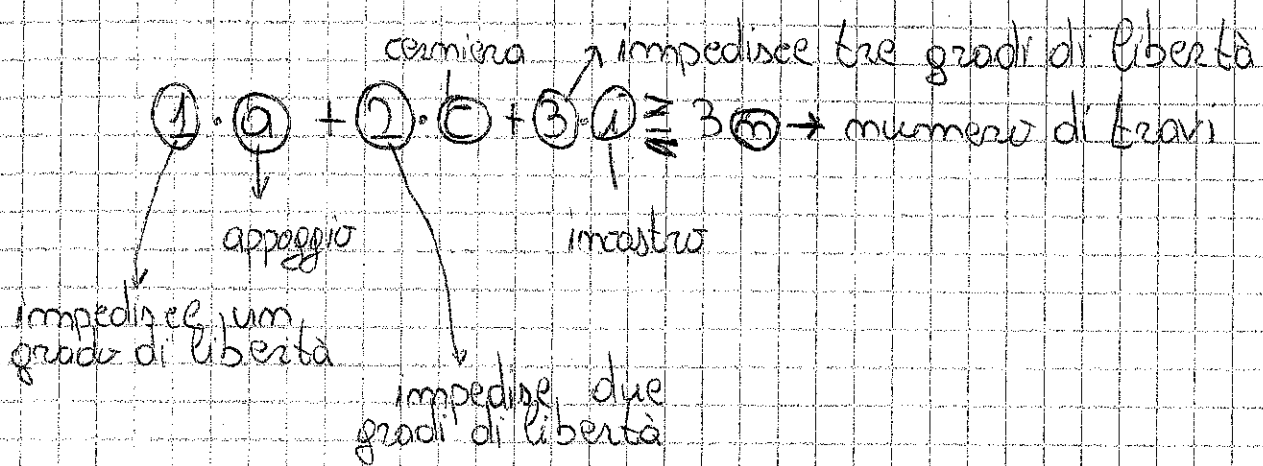 cerniera impedisce tre gradi di libertà
1 · a + 2 · c + 3 · i ⪌ 3 n → numero di travi
appoggio incastro
impedisce un
grado di libertà
impedisce due
gradi di libertà